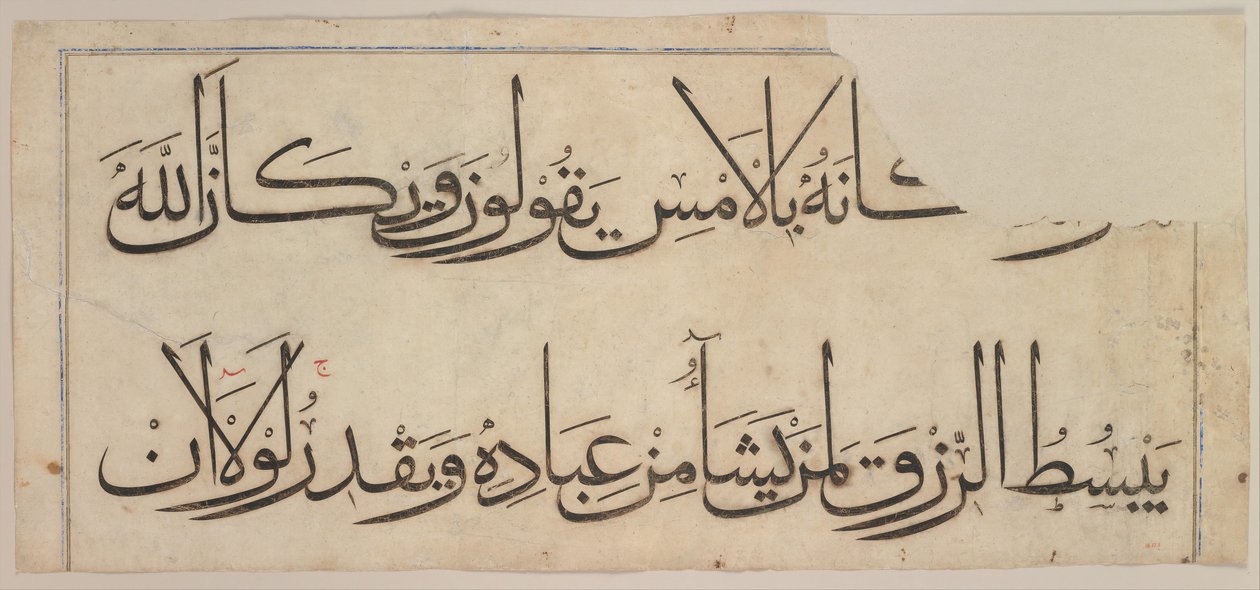 كَانَهُ بِالْاَمْسِ يَقُولُونَ وَيْكَاَنَّ اللّٰهَ
يَبْسُطُ الرِّزْقَ لِمَنْ يَشَآءُ مِنْ عِبَادِهِ وَيَقْدِرُ ج لَوْلَا اَنْ